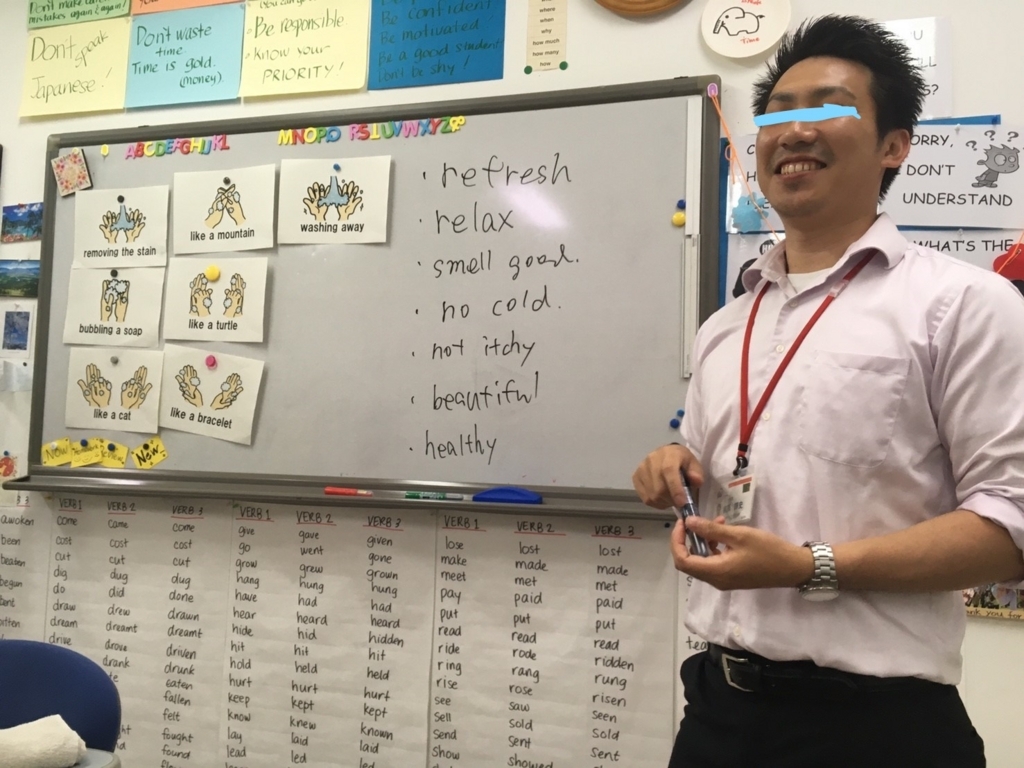 Don't make
mistakes again! (again!)
Don't speak
Japanese!
Don't waste
time.
Time is gold.
(money).
• Be responsible
• Know your
PRIORITY!
Be confident!
Be motivated.
Be a good student
Don't be shy!
where
when
why
how much
how many
how
ABCDEFGHIJKL MNOPQ RSTUVWXYZ
removing the stain
like a mountain
washing away
bubbling a soap
like a turtle
like a cat
like a bracelet
Now
New
• refresh
• relax
• smell good.
• no cold.
• not itchy
• beautiful
• healthy
U
LL
S?
ORRY,
DON'T
UNDERSTAND
WHAT'S THE
VERB 1 VERB 2 VERB 3
come came come
cost cost cost
cut cut cut
dig dug dug
do did done
draw drew drawn
dream dreamt dreamt
drive drove driven
drank drunk
eaten
fallen
felt
fought
found
awoken
been
beaten
begun
VERB 1 VERB 2 VERB 3
give gave given
go went gone
grow grew grown
hang hung hung
have had had
hear heard heard
hide hid hidden
hit hit hit
hold held held
hurt hurt hurt
keep kept kept
know knew known
lay laid laid
lead led led
VERB 1 VERB 2 VERB 3
lose lost lost
make made made
meet met met
pay paid paid
put put put
read read read
ride rode ridden
ring rang rung
rise rose risen
see saw seen
sell sold sold
send sent sent
show showed